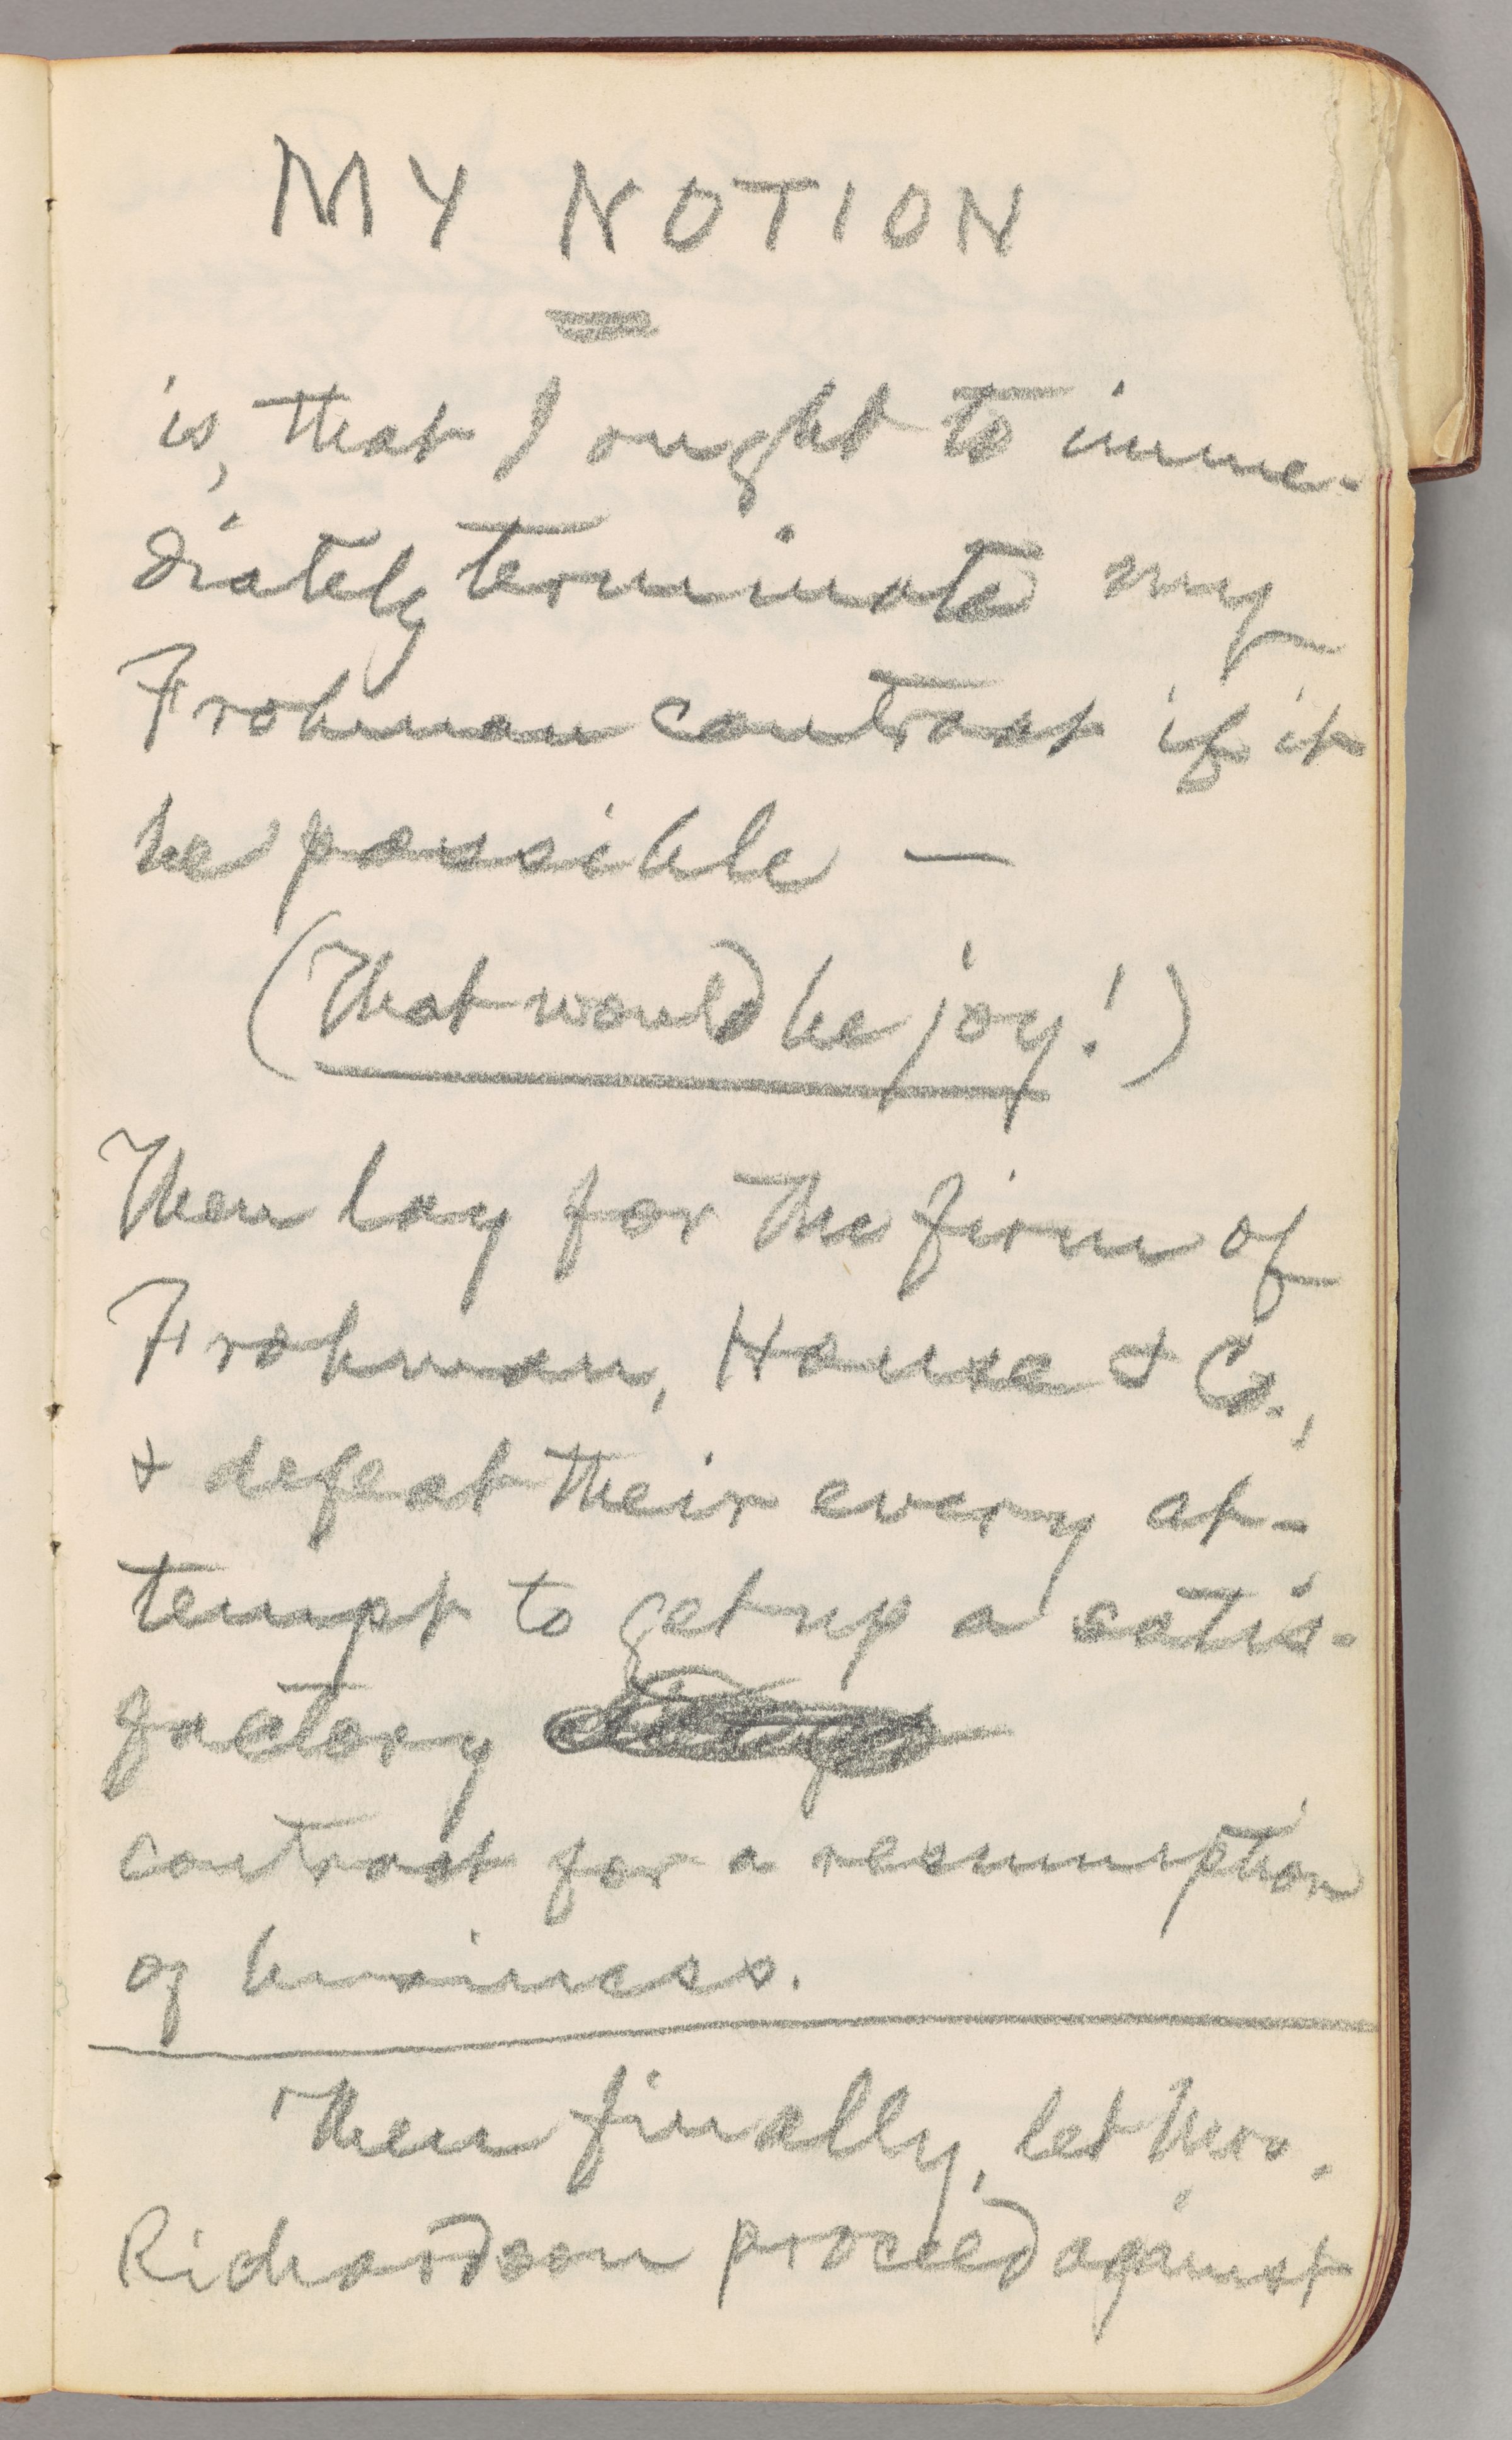 MY NOTION
is, that I ought to imme-
diately terminate my
Frohman contract if it
be possible —
(That would be joy!)
Then lay for the firm of
Frohman, House & Co.,
& defeat their every at-
tempt to get up a satis-
factory
contract for a resumption
of business.
Then finally, let Mrs.
Richardson proceed against